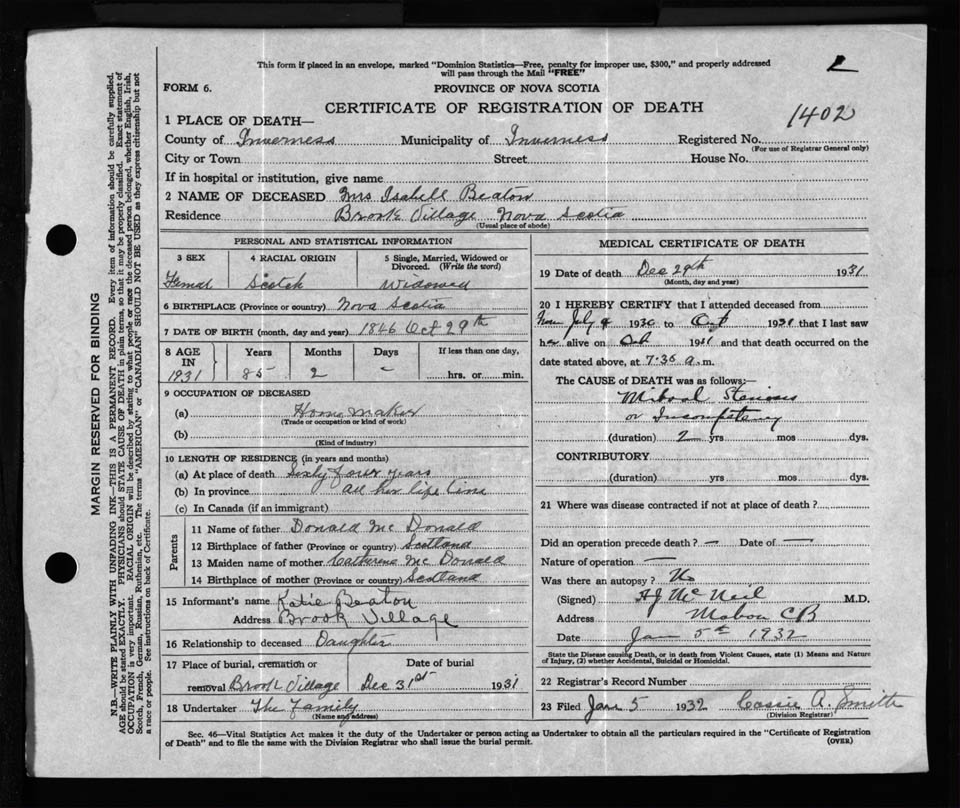 This form if placed in an envelope, marked "Dominion Statistics—Free, penalty for improper use, $300," and properly addressed
will pass through the Mail "FREE"
FORM 6.
PROVINCE OF NOVA SCOTIA
CERTIFICATE OF REGISTRATION OF DEATH
1402
1 PLACE OF DEATH—
County of Inverness Municipality of Inverness Registered No.
(For use of Registrar General only)
City or Town Street House No.
If in hospital or institution, give name
2 NAME OF DECEASED Mrs Isabell Beaton
Residence Brook Village Nova Scotia
(Usual place of abode)
PERSONAL AND STATISTICAL INFORMATION
3 SEX 4 RACIAL ORIGIN 5 Single, Married, Widowed or
Divorced. (Write the word)
Femal Scotch Widowed
6 BIRTHPLACE (Province or country) Nova Scotia
7 DATE OF BIRTH (month, day and year) 1846 Oct 29th
8 AGE Years Months Days If less than one day,
IN
1931 85 2 – hrs. or min.
9 OCCUPATION OF DECEASED
(a) Home maker
(Trade or occupation or kind of work)
(b)
(Kind of industry)
10 LENGTH OF RESIDENCE (in years and months)
(a) At place of death Sixty four years
(b) In province all her life time
(c) In Canada (if an immigrant)
Parents
11 Name of father Donald Mc Donald
12 Birthplace of father (Province or country) Scotland
13 Maiden name of mother Catherine Mc Donald
14 Birthplace of mother (Province or country) Scotland
15 Informant's name Katie Beaton
Address Brook Village
16 Relationship to deceased Daughter
17 Place of burial, cremation or Date of burial
removal Brook Village Dec 31st 1931
18 Undertaker The Family
(Name and address)
MEDICAL CERTIFICATE OF DEATH
19 Date of death Dec 29th 1931
(Month, day and year)
20 I HEREBY CERTIFY that I attended deceased from
July 1930 to Oct 1931 that I last saw
her alive on Oct 1931 and that death occurred on the
date stated above, at 7.35 a.m.
The CAUSE OF DEATH was as follows:—
Mitral Stenosis
or Incompetency
(duration) 2 yrs mos dys.
CONTRIBUTORY
(duration) yrs. mos. dys.
21 Where was disease contracted if not at place of death?
Did an operation precede death? – Date of –
Nature of operation –
Was there an autopsy? No
(Signed) HJ McNeil M.D.
Address Mabou CB
Date Jan 5th 1932
State the Disease causing Death, or in death from Violent Causes, state (1) Means and Nature
of Injury, (2) whether Accidental, Suicidal or Homicidal.
22 Registrar's Record Number
23 Filed Jan 5 1932 Cassie A. Smith
(Division Registrar)
Sec. 46—Vital Statistics Act makes it the duty of the Undertaker or person acting as Undertaker to obtain all the particulars required in the "Certificate of Registration
of Death" and to file the same with the Division Registrar who shall issue the burial permit.
(OVER)
MARGIN RESERVED FOR BINDING
N.B.—WRITE PLAINLY WITH UNFADING INK—THIS IS A PERMANENT RECORD. Every item of information should be carefully supplied.
AGE should be stated EXACTLY. PHYSICIANS should STATE CAUSE OF DEATH in plain terms, so that it may be properly classified. Exact statement of
OCCUPATION is very important. RACIAL ORIGIN will be described by stating to what people or race the deceased person belonged, whether English, Irish,
Scotch, French, German, Russian, Ruthenian, etc. The terms "AMERICAN" or "CANADIAN" SHOULD NOT BE USED as they express citizenship but not
a race or people. See instructions on back of Certificate.